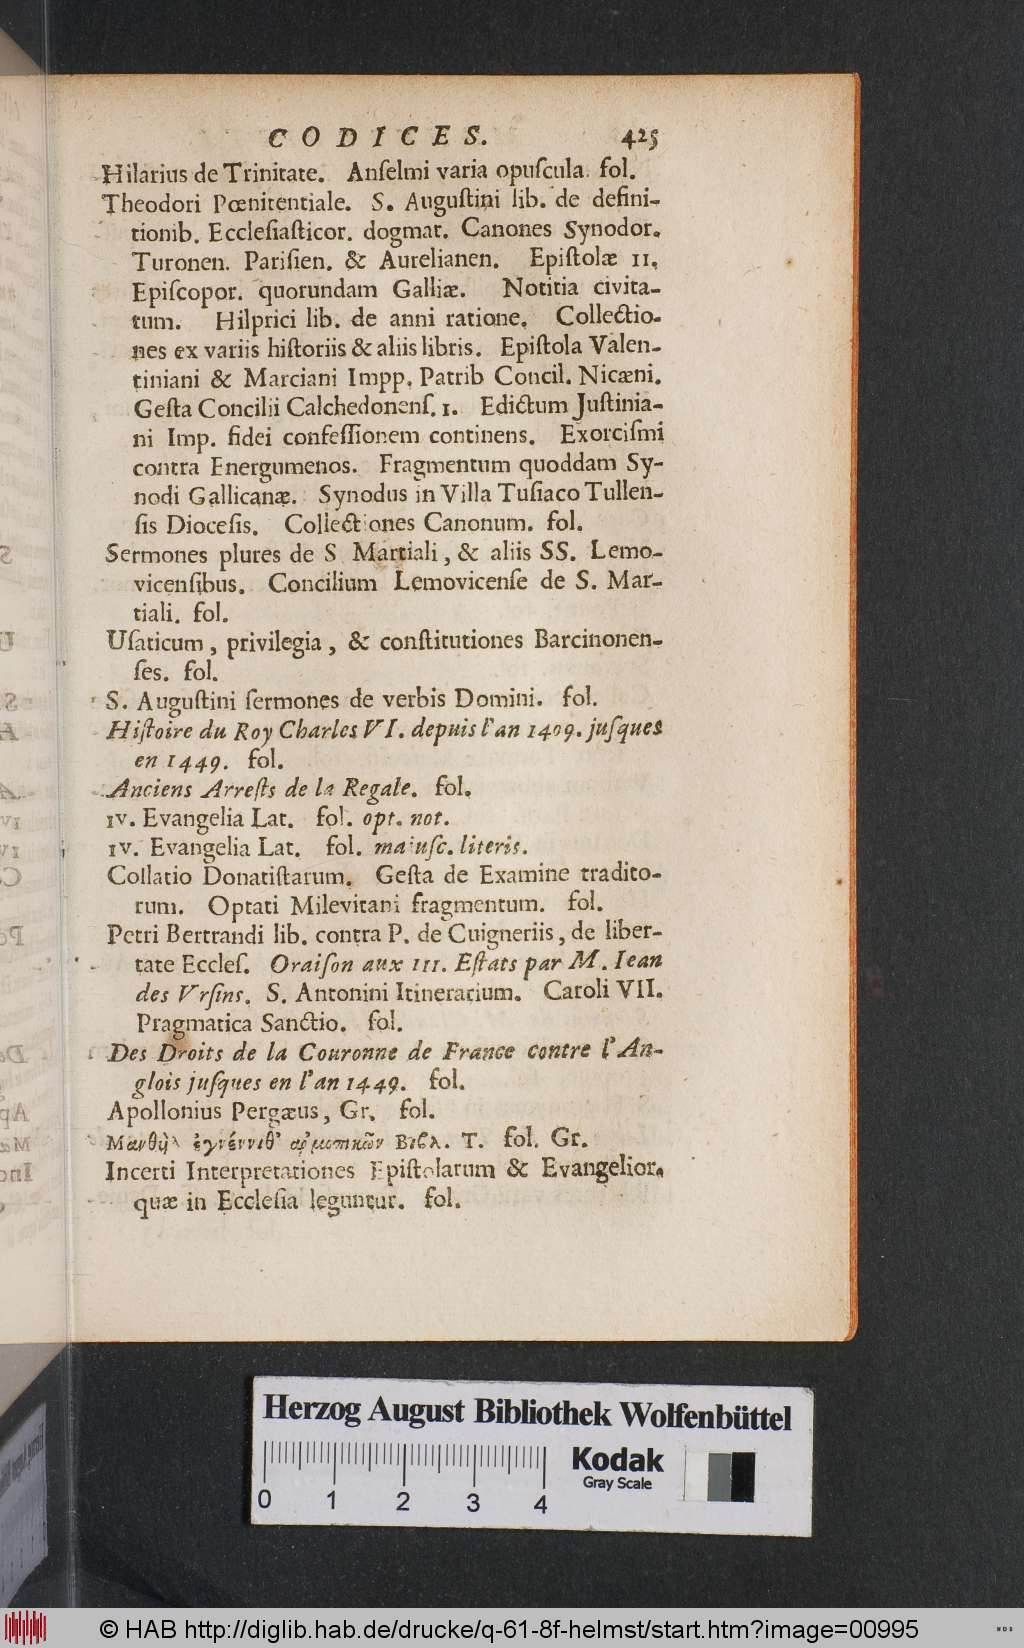 CODICES. 425
Hilarius de Trinitate. Anſelmi varia opuſcula. fol.
Theodori Pœnitentiale. S. Auguſtini lib. de defini-
tionib. Eccleſiaſticor. dogmat. Canones Synodor.
Turonen. Pariſien. & Aurelianen. Epiſtolæ II.
Epiſcopor. quorundam Galliæ. Notitia civita-
tum. Hilprici lib. de anni ratione. Collectio-
nes ex variis hiſtoriis & aliis libris. Epiſtola Valen-
tiniani & Marciani Impp. Patrib Concil. Nicæni.
Geſta Concilii Calchedonenſ. I. Edictum Juſtinia-
ni Imp. fidei confeſſionem continens. Exorciſmi
contra Energumenos. Fragmentum quoddam Sy-
nodi Gallicanæ. Synodus in Villa Tuſiaco Tullen-
ſis Dioceſis. Collectiones Canonum. fol.
Sermones plures de S Martiali, & aliis SS. Lemo-
vicenſibus. Concilium Lemovicenſe de S. Mar-
tiali. fol.
Uſaticum, privilegia, & conſtitutiones Barcinonen-
ſes. fol.
S. Auguſtini ſermones de verbis Domini. fol.
Hiſtoire du Roy Charles VI. depuis l'an 1409. juſques
en 1449. fol.
Anciens Arreſts de la Regale. fol.
IV. Evangelia Lat. fol. opt. not.
IV. Evangelia Lat. fol. maiuſc. literis.
Collatio Donatiſtarum. Geſta de Examine tradito-
rum. Optati Milevitani fragmentum. fol.
Petri Bertrandi lib. contra P. de Cuigneriis, de liber-
tate Eccleſ. Oraiſon aux III. Eſtats par M. Iean
des Vrſins. S. Antonini Itinerarium. Caroli VII.
Pragmatica Sanctio. fol.
Des Droits de la Couronne de France contre l'An-
glois juſques en l'an 1449. fol.
Apollonius Pergæus, Gr. fol.
Βιβλ. T. fol. Gr.
Incerti Interpretationes Epiſtolarum & Evangelior.
quæ in Eccleſia leguntur. fol.
Herzog August Bibliothek Wolfenbüttel
Kodak
Gray Scale
0 1 2 3 4
© HAB http://diglib.hab.de/drucke/q-61-8f-helmst/start.htm?image=00995